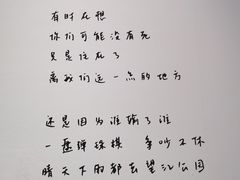 有时在想
你们可能没有死
只是住在了
离我们远一点的地方
还是因为谁输了谁
一盘弹珠棋 争吵不休
晴天下的都去望江公园